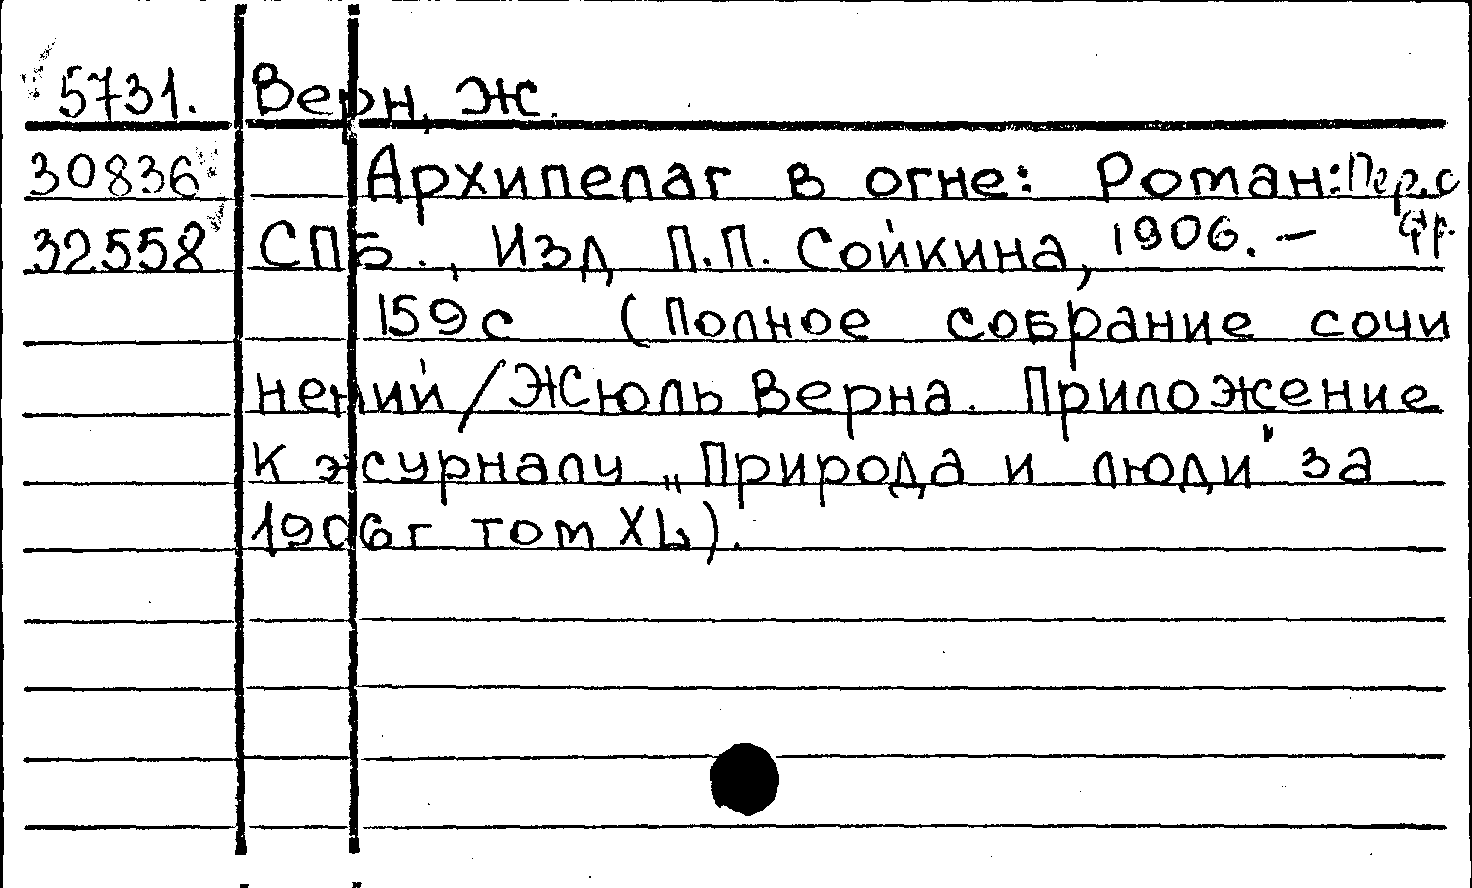 5731. Верн, Ж.
30836 Архипелаг в огне: Роман: Пер. с
32558 СПБ., Изд П.П. Сойкина, 1906. – фр.
159 с (Полное собрание сочи
нений / Жюль Верна. Приложение
к журналу „Природа и люди" за
1906 г том XL).